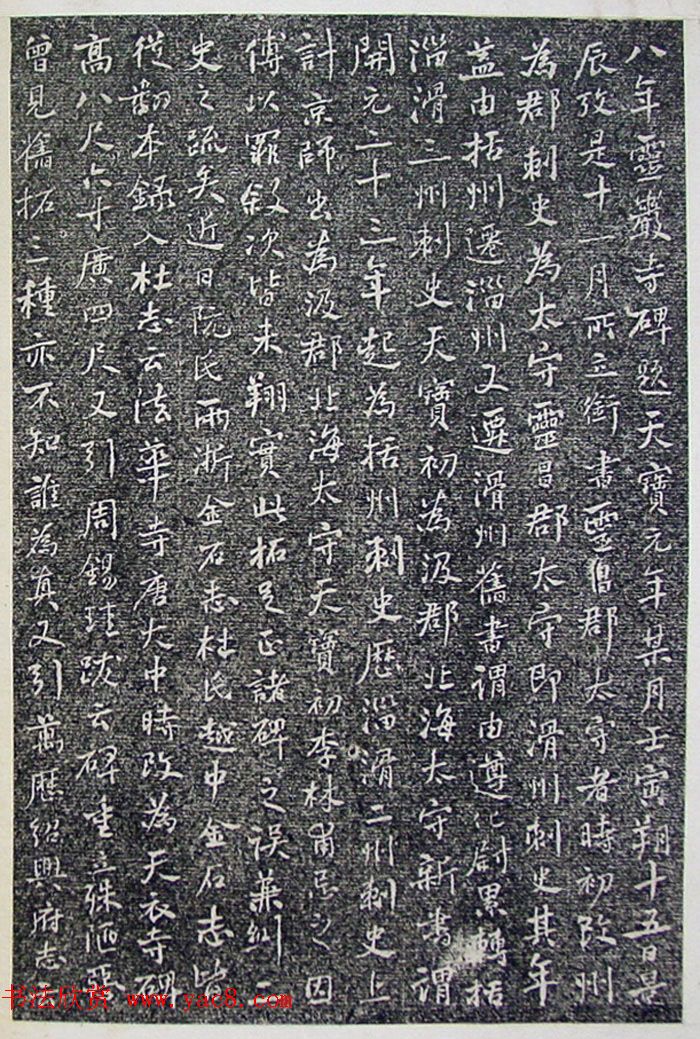 八年靈巖寺碑題天寶元年某月壬寅朔十五日景
辰攷是十一月所立銜書靈昌郡太守者時初改州
為郡刺史為太守靈昌郡太守即滑州刺史其年
蓋由括州遷淄州又遷滑州舊書謂由遵化尉累轉括
淄滑三州刺史天寶初為汲郡北海太守新書謂
開元二十三年起為括州刺史歷淄滑二州刺史上
計京師出為汲郡北海太守天寶初李林甫忌之因
傅以罪敘次皆未翔實此拓足正諸碑之誤兼糾二
史之疏矣近日阮氏兩浙金石志杜氏越中金石志皆
從翻本錄入杜志云法華寺唐大中時改為天衣寺碑
高八尺六寸廣四尺又引周錫珪跋云碑重立殊陋
曾見舊拓三種亦不知誰為真又引萬歷紹興府志
书法欣赏 www.yac8.com